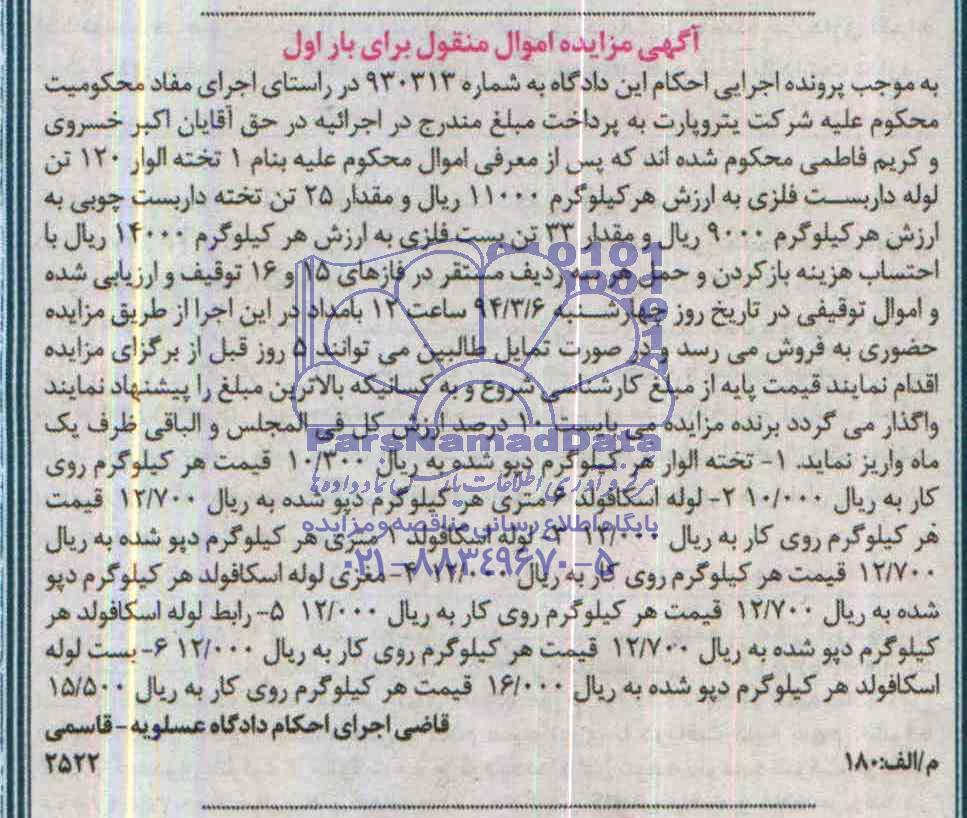 آگهی مزایده اموال منقول برای بار اول
به موجب پرونده اجرایی احکام این دادگاه به شماره ۹۳۰۳۱۳ در راستای اجرای مفاد محکومیت
محکوم علیه شرکت پتروپارت به پرداخت مبلغ مندرج در اجرائیه در حق آقایان اکبر خسروی
و کریم فاطمی محکوم شده اند که پس از معرفی اموال محکوم علیه بنام ۱ تخته الوار ۱۲۰ تن
لوله داربست فلزی به ارزش هر کیلوگرم ۱۱۰۰۰ ریال و مقدار ۲۵ تن تخته داربست چوبی به
ارزش هر کیلوگرم ۹۰۰۰ ریال و مقدار ۳۳ تن بست فلزی به ارزش هر کیلوگرم ۱۴۰۰۰ ریال با
احتساب هزینه بازکردن و حمل هر سه ردیف مستقر در فازهای ۱۵ و ۱۶ توقیف و ارزیابی شده
و اموال توقیفی در تاریخ روز چهارشنبه ۹۴/۳/۶ ساعت ۱۲ بامداد در این اجرا از طریق مزایده
حضوری به فروش می رسد و در صورت تمایل طالبین می توانند ۵ روز قبل از برگزای مزایده
اقدام نمایند قیمت پایه از مبلغ کارشناسی شروع و به کسانیکه بالاترین مبلغ را پیشنهاد نمایند
واگذار می گردد برنده مزایده می بایست ۱۰ درصد ارزش کل فی المجلس و الباقی ظرف یک
ParsNamadData
ماه واریز نماید. ۱- تخته الوار هر کیلوگرم دپو شده به ریال ۱۰/۳۰۰ قیمت هر کیلوگرم روی
مرکز فرآوری اطلاعات پارس نماد داده ها
کار به ریال ۱۰/۰۰۰ ۲- لوله اسکافولد ۶ متری هر کیلوگرم دپو شده به ریال ۱۲/۷۰۰ قیمت
پایگاه اطلاع رسانی مناقصه و مزایده
هر کیلوگرم روی کار به ریال ۱۲/۰۰۰ ۳- لوله اسکافولد ۱ متری هر کیلوگرم دپو شده به ریال
۰۲۱-۸۸۳۴۹۶۷۰-۵
۱۲/۷۰۰ قیمت هر کیلوگرم روی کار به ریال ۱۲/۰۰۰ ۴- مغزی لوله اسکافولد هر کیلوگرم دپو
شده به ریال ۱۲/۷۰۰ قیمت هر کیلوگرم روی کار به ریال ۱۲/۰۰۰ ۵- رابط لوله اسکافولد هر
کیلوگرم دپو شده به ریال ۱۲/۷۰۰ قیمت هر کیلوگرم روی کار به ریال ۱۲/۰۰۰ ۶- بست لوله
اسکافولد هر کیلوگرم دپو شده به ریال ۱۶/۰۰۰ قیمت هر کیلوگرم روی کار به ریال ۱۵/۵۰۰
قاضی اجرای احکام دادگاه عسلویه - قاسمی
م/الف: ۱۸۰ ۲۵۲۲